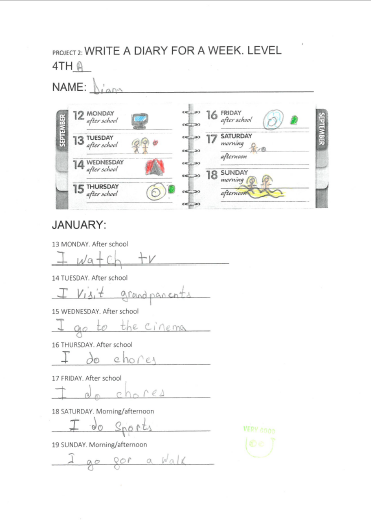 PROJECT 2: WRITE A DIARY FOR A WEEK. LEVEL
4TH A
NAME: Diam
SEPTEMBER
12 MONDAY
after school
13 TUESDAY
after school
14 WEDNESDAY
after school
15 THURSDAY
after school
16 FRIDAY
after school
17 SATURDAY
morning
afternoon
18 SUNDAY
morning
afternoon
SEPTEMBER
JANUARY:
13 MONDAY. After school
I watch tv
14 TUESDAY. After school
I visit grandparents
15 WEDNESDAY. After school
I go to the cinema
16 THURSDAY. After school
I do chores
17 FRIDAY. After school
I do chores
18 SATURDAY. Morning/afternoon
I do sports
19 SUNDAY. Morning/afternoon
I go gor a walk